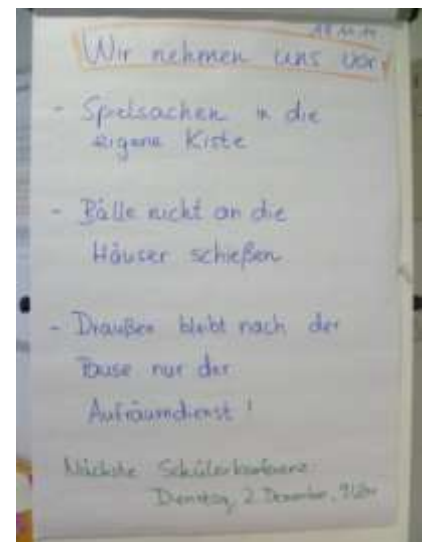 18.11.14
Wir nehmen uns vor
- Spielsachen in die
eigene Kiste
- Bälle nicht an die
Häuser schießen
- Draußen bleibt nach der
Pause nur der
Aufräumdienst!
Nächste Schülerkonferenz:
Dienstag, 2. Dezember, 9 Uhr